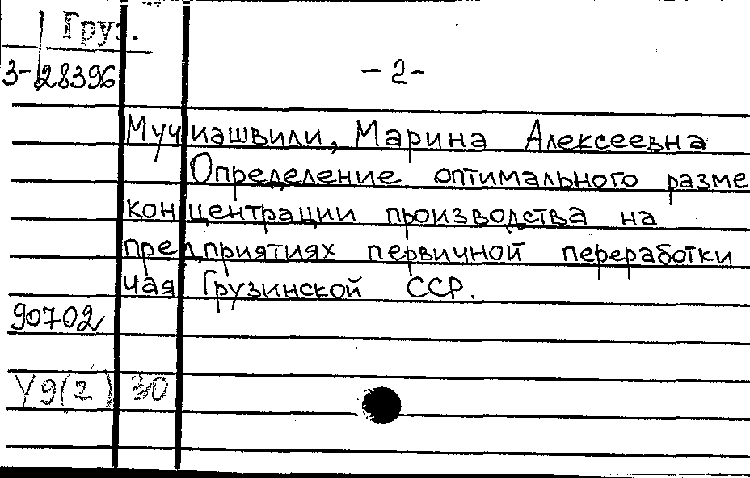 Груз.
3-28396
-2-
Мучиашвили, Марина Алексеевна
Определение оптимального разме
концентрации производства на
предприятиях первичной переработки
чая Грузинской ССР.
90702
У9(2)30